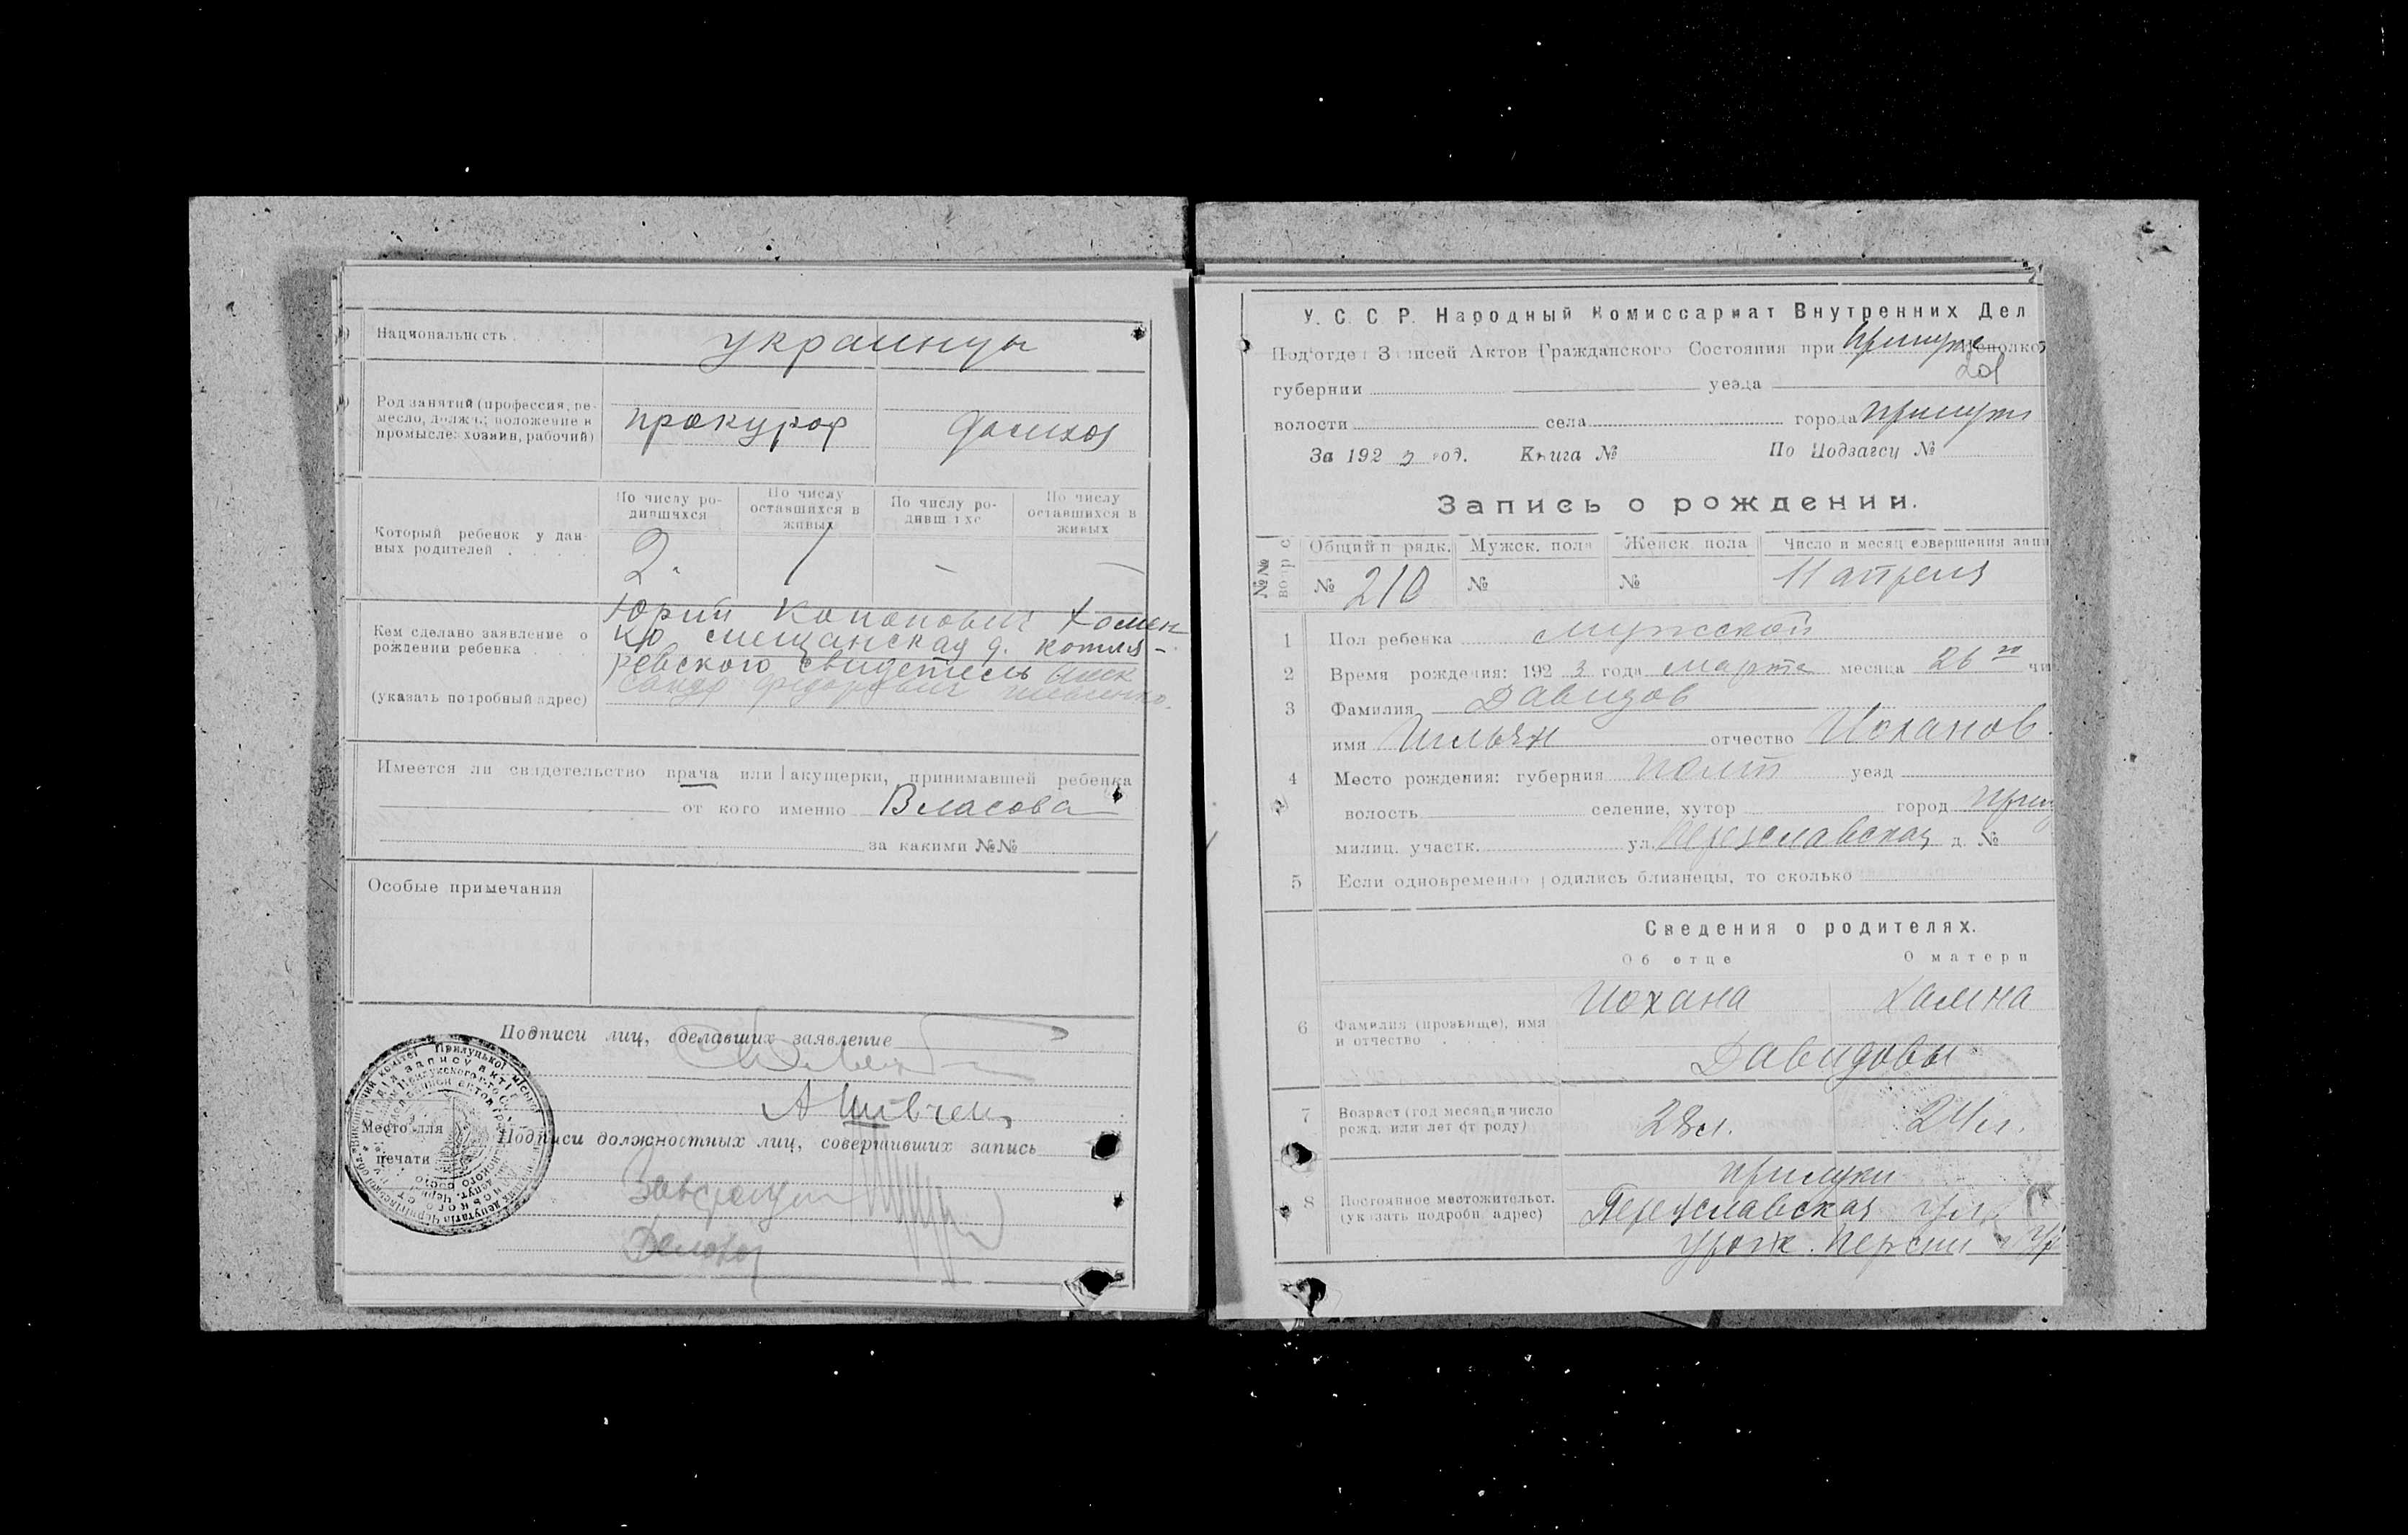 Национальность
украинцы
Род занятий (профессия, ре-
месло, должн.; положение в
промысле: хозяин, рабочий)
прокурор
Который ребенок у дан-
ных родителей
По числу ро-
дившихся
По числу
оставшихся в
живых
По числу ро-
дивших
По числу
оставшихся в
живых
2. 1 — —
Кем сделано заявление о
рождении ребенка
(указать подробный адрес)
Юрий Кононович Хомен
ко, смещанская д. Котля-
ревского свидетель Алек
сандр Федорович Шевченко.
Имеется ли свидетельство врача или акушерки, принимавшей ребенка
от кого именно Власова
за какими №№
Особые примечания
Подписи лиц, сделавших заявление
А Шевчен
Подписи должностных лиц, совершивших запись
Место для
печати
У. С. С. Р. Народный Комиссариат Внутренних Дел
Подотдел Записей Актов Гражданского Состояния при
губернии уезда
волости села города Прилуки
За 1923 год. Книга № По Подзагсу №
Запись о рождении.
№№
Общий п рядк. Мужск. пола Женск пола Число и месяц совершения запи
№ 210 № № 11 апреля
1 Пол ребенка мужской
2 Время рождения: 1923 года марта месяца 26 го чи
3 Фамилия Давидов
имя отчество Иоханов.
4 Место рождения: губерния Полт уезд
волость селение, хутор город Прилу
милиц. участк. ул. Переяславская д. №
5 Если одновременно родились близнецы, то сколько
Сведения о родителях.
Об отце О матери
6 Фамилия (прозвище), имя
и отчество
Иохана Ханина
Давидовы
7 Возраст (год месяц и число
рожд. или лет от роду)
28 л. 24 л.
8 Постоянное местожительст.
(указать подробн адрес)
Прилуки
Переяславская ул.
урож. Персии